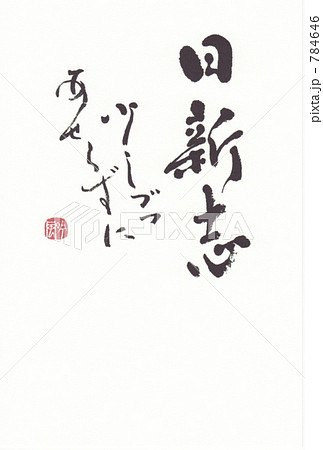 日新志
少しづつ
あせらずに
PIXTA
pixta.jp - 784646